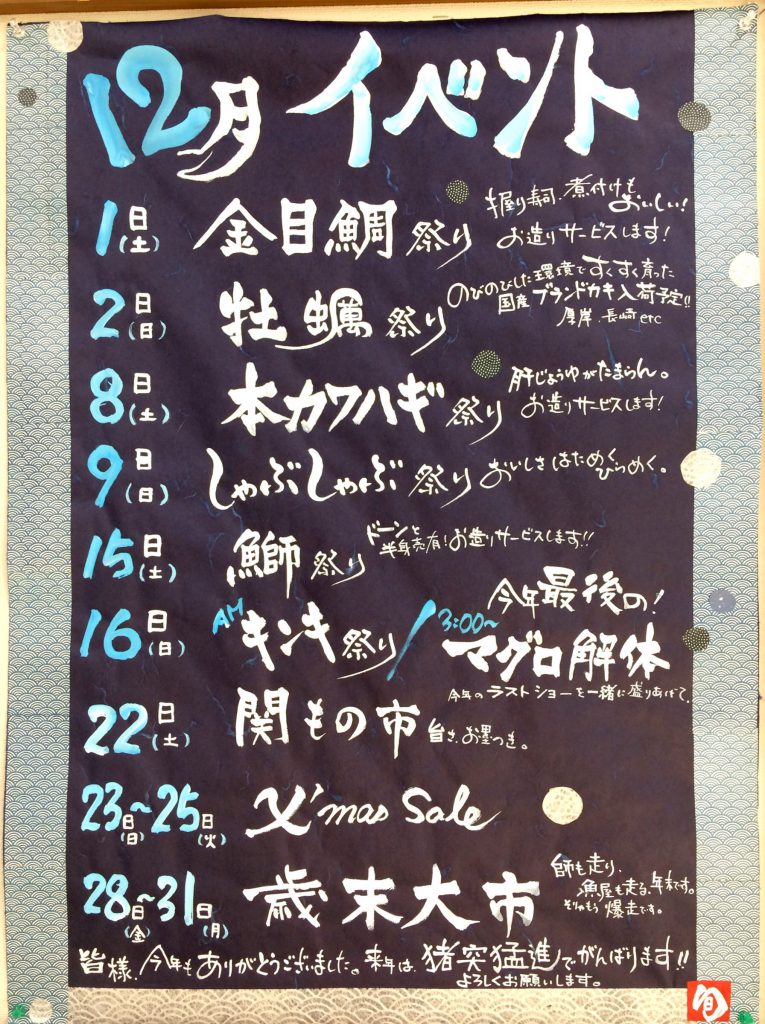 12月 イベント
1日(土) 金目鯛祭り 握り寿司、煮付けもおいしい!
お造りサービスします!
2日(日) 牡蠣祭り のびのびした環境ですくすく育った
国産ブランドカキ入荷予定!!
厚岸、長崎etc
8日(土) 本カワハギ祭り 肝じょうゆがたまらん。
お造りサービスします!
9日(日) しゃぶしゃぶ祭り おいしさはためくびらめく。
15日(土) 鰤祭り ドーンと
半身売有!お造りサービスします!!
16日(日) AM キンキ祭り / 3:00〜 今年最後の!
マグロ解体
今年のラストショーを一緒に盛りあげて。
22日(土) 関もの市 旨さ、お墨つき。
23日(日)〜25日(火) X'mas Sale
28日(金)〜31日(月) 歳末大市 師も走り、
魚屋も走る、年末です。
そりゃもう爆走です。
皆様、今年もありがとうございました。来年は、猪突猛進でがんばります!!
よろしくお願いします。
旬